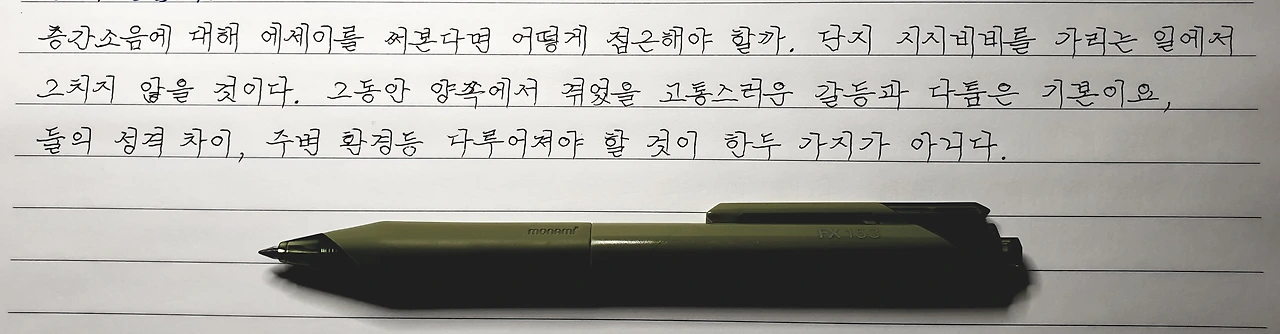 층간소음에 대해 에세이를 써본다면 어떻게 접근해야 할까. 단지 시시비비를 가리는 일에서
그치지 않을 것이다. 그동안 양쪽에서 겪었을 고통스러운 갈등과 다툼은 기본이요,
둘의 성격 차이, 주변 환경등 다루어져야 할 것이 한두 가지가 아니다.
monami
FX 153